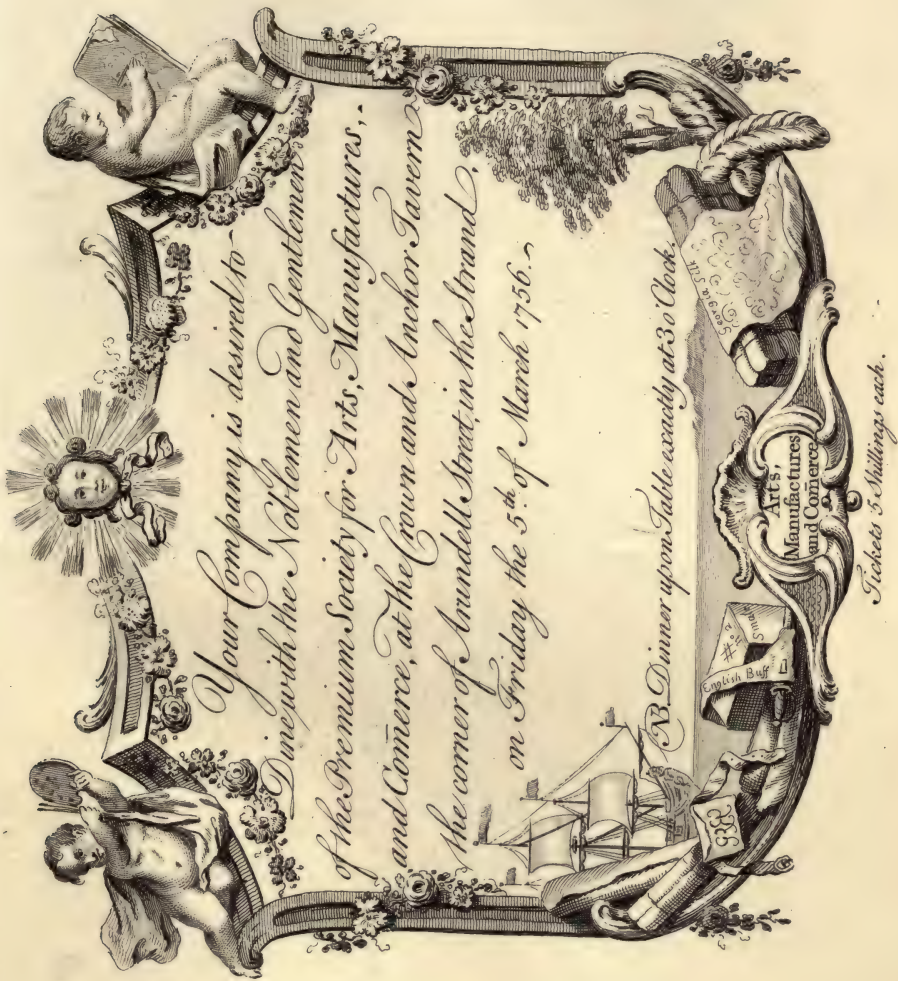 Your Company is desired to
Dine with the Noblemen and Gentlemen
of the Premium Society for Arts, Manufactures,
and Com̄erce, at The Crown and Anchor Tavern
the corner of Arundell Street, in the Strand,
on Friday the 5th of March 1756.
NB. Dinner upon Table exactly at 3 o'Clock.
Georgia Silk
English Buff
No. 2
Smalt
Arts,
Manufactures
and Com̄erce
Tickets 5 Shillings each.